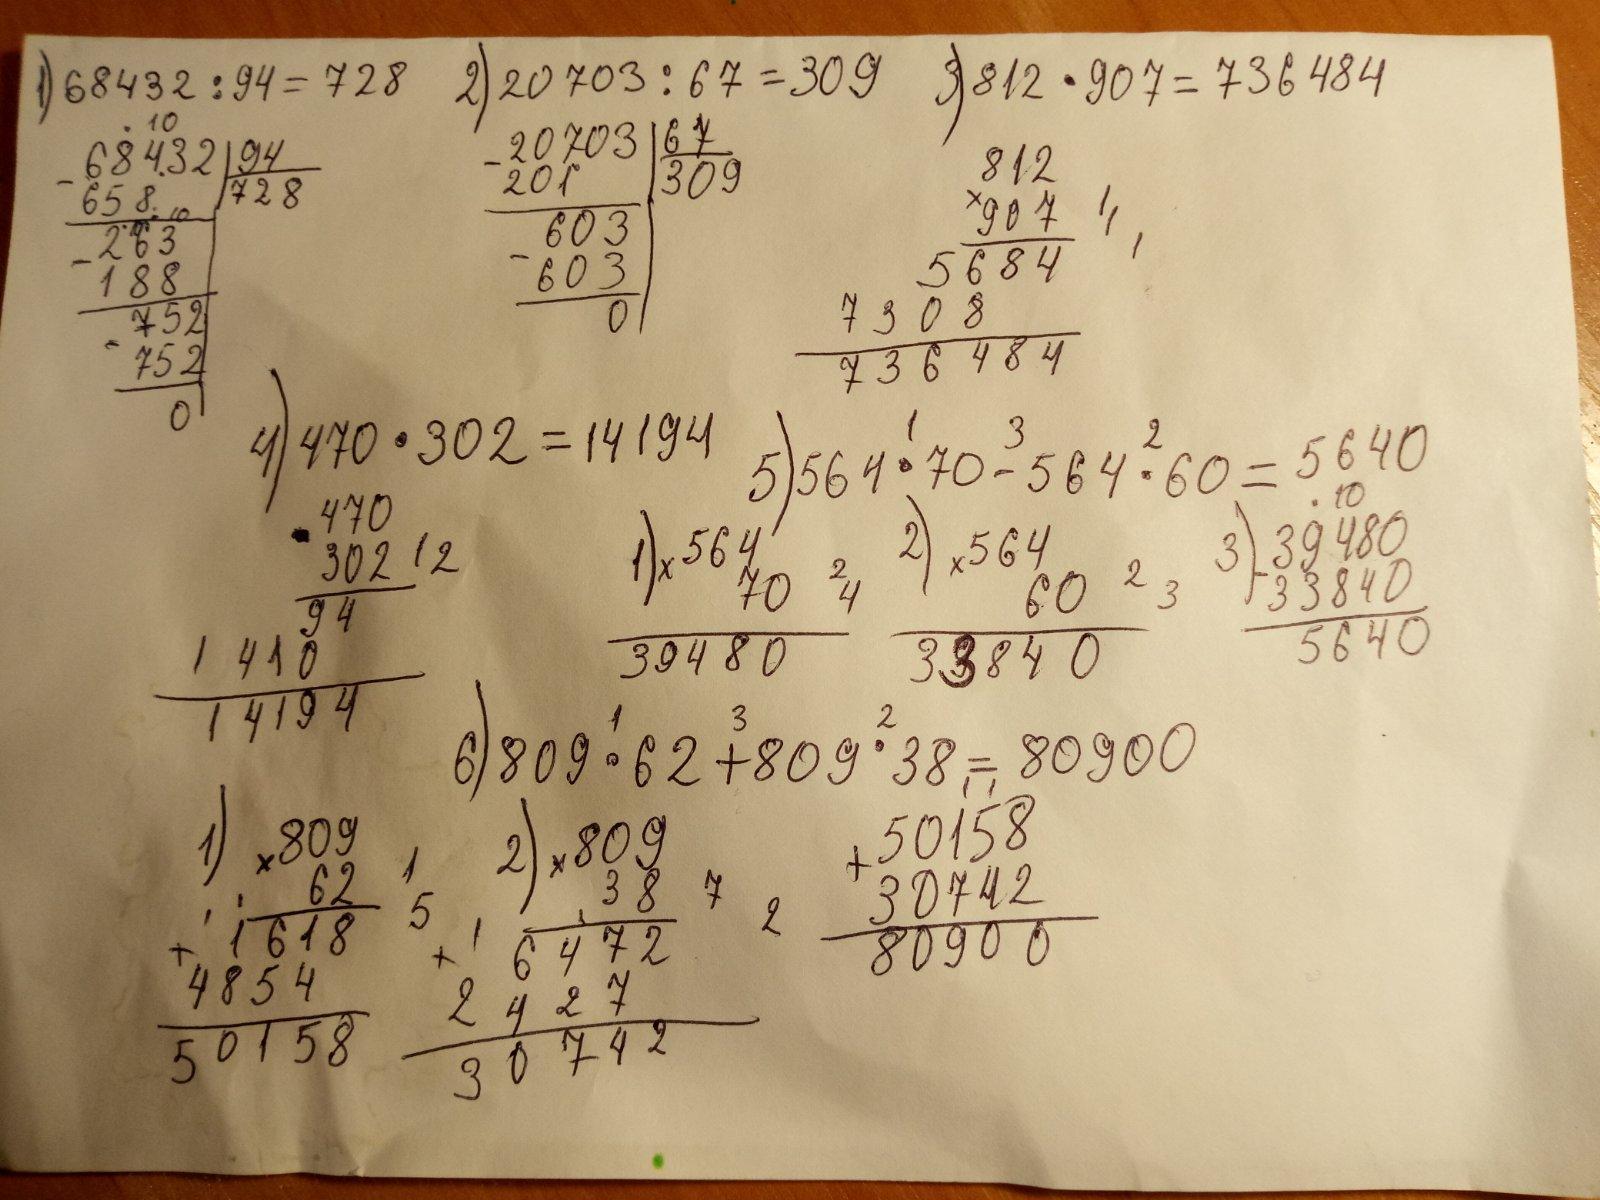 1) 68432 : 94 = 728
. 10
- 68432 | 94
658 | 728
. . 10
- 263
188
- 752
752
0
2) 20703 : 67 = 309
- 20703 | 67
201 | 309
- 603
603
0
3) 812 · 907 = 736484
812
× 907 1 1 1
5684
7308
736484
4) 470 · 302 = 14194
· 470
302 1 2
94
1410
14194
1 3 2
5) 564 · 70 - 564 · 60 = 5640
1) × 564
70 2 4
39480
2) × 564
60 2 3
33840
. 10
3) - 39480
33840
5640
1 3 2
6) 809 · 62 + 809 · 38 = 80900
1) × 809
62 1 5
1 1
+ 1618
4854
50158
2) × 809
38 7 2
1 1
+ 6472
2427
30742
1 1
+ 50158
30742
80900